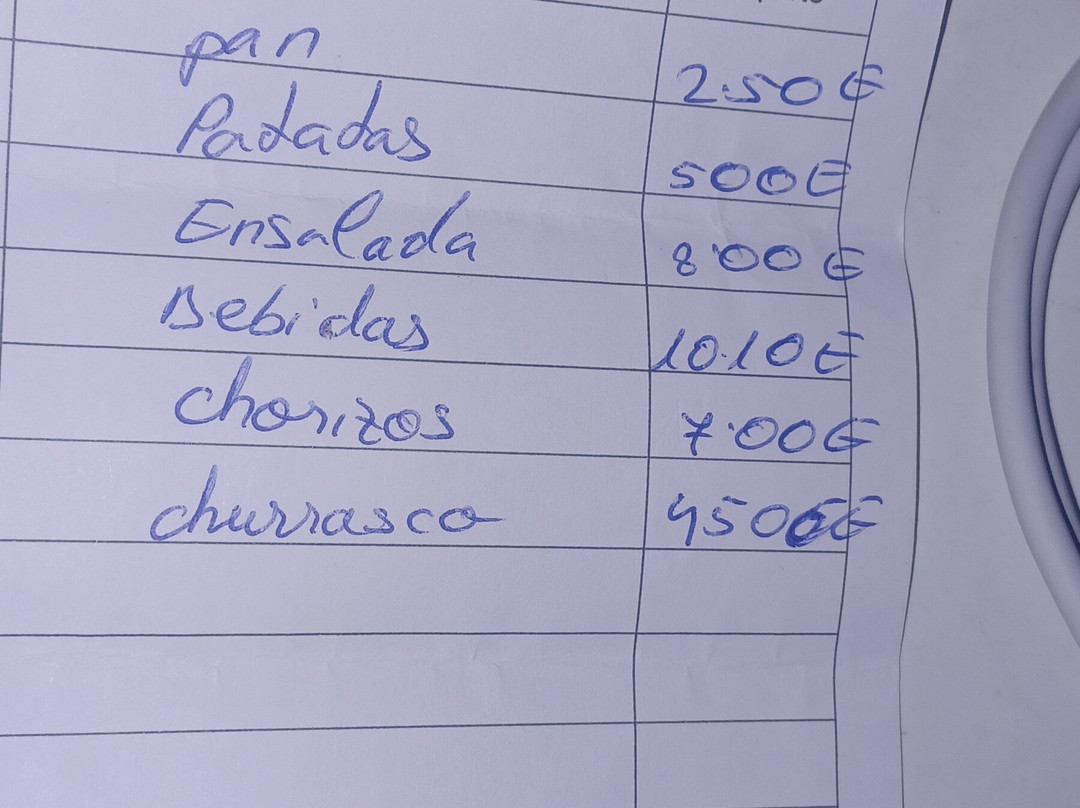 pan 2.50€
Patatas 500€
Ensalada 8'00€
Bebidas 10.10€
chorizos 7.00€
churrasco 4500€